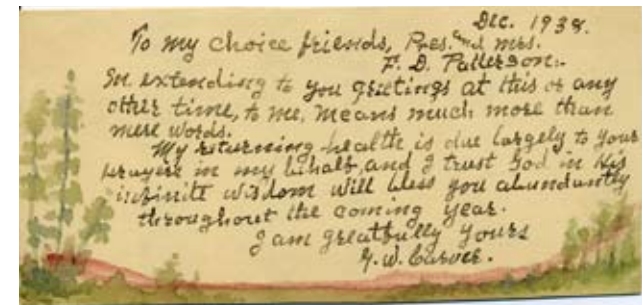 Dec. 1938.
To my choice friends, Pres. and Mrs.
F. D. Patterson:-
In extending to you greetings at this or any
other time, to me, means much more than
mere words.
My returning health is due largely to your
prayers in my behalf, and I trust God in His
infinite wisdom will bless you abundantly
throughout the coming year.
I am greatfully yours
G. W. Carver.